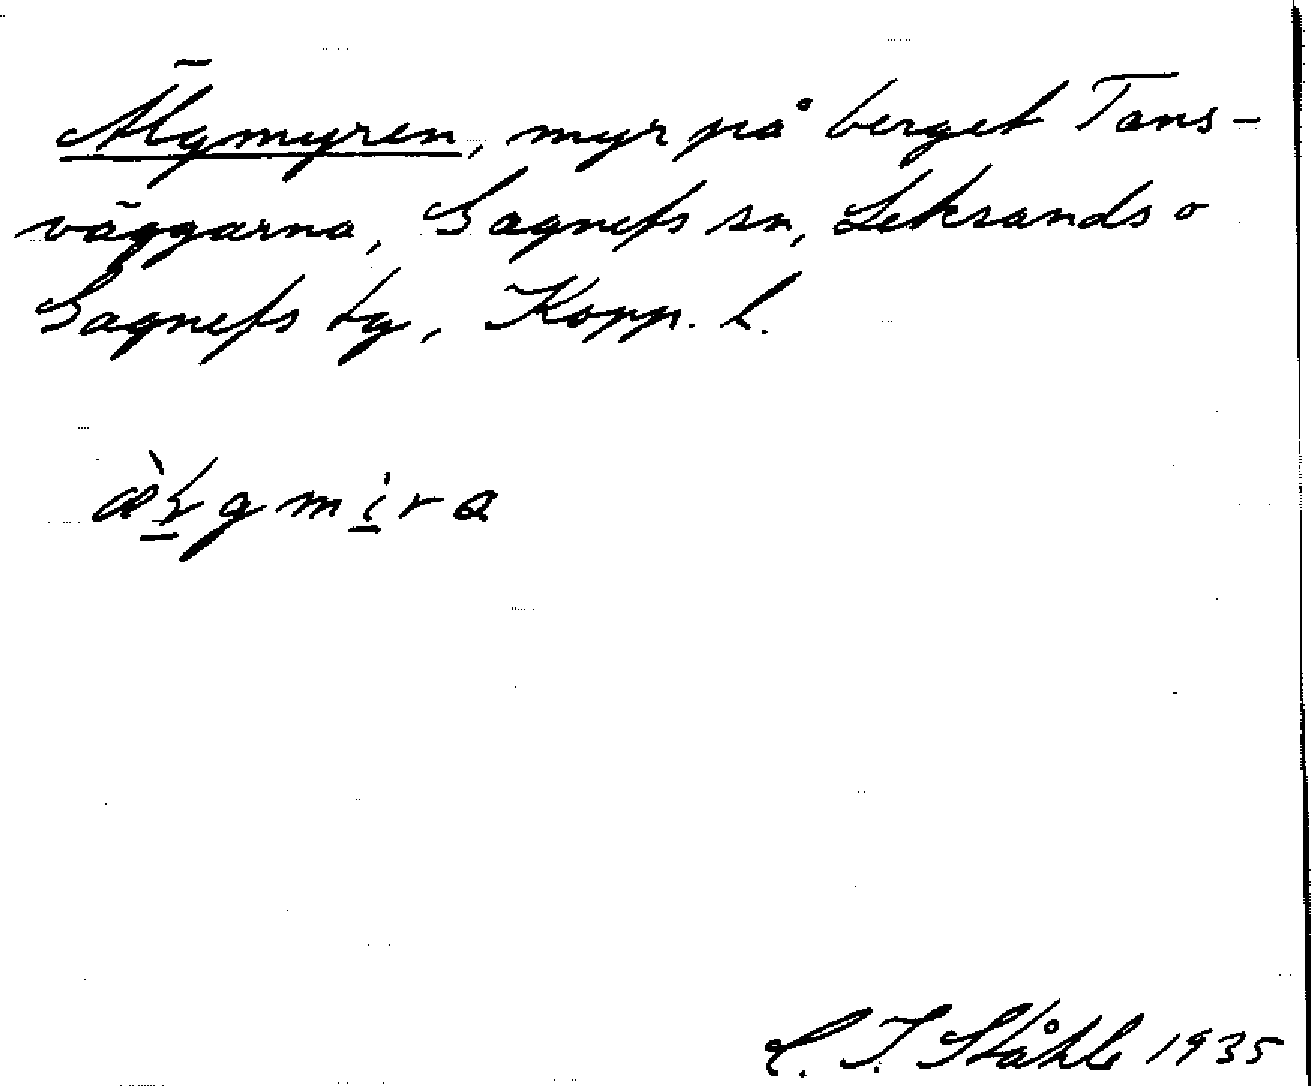 Älgmyren, myr på berget Tans-
väggarna, Gagnefs sn, Leksands o
Gagnefs tg, Kopp. l.
æ̀ḷgmira
C. I. Ståhle 1935